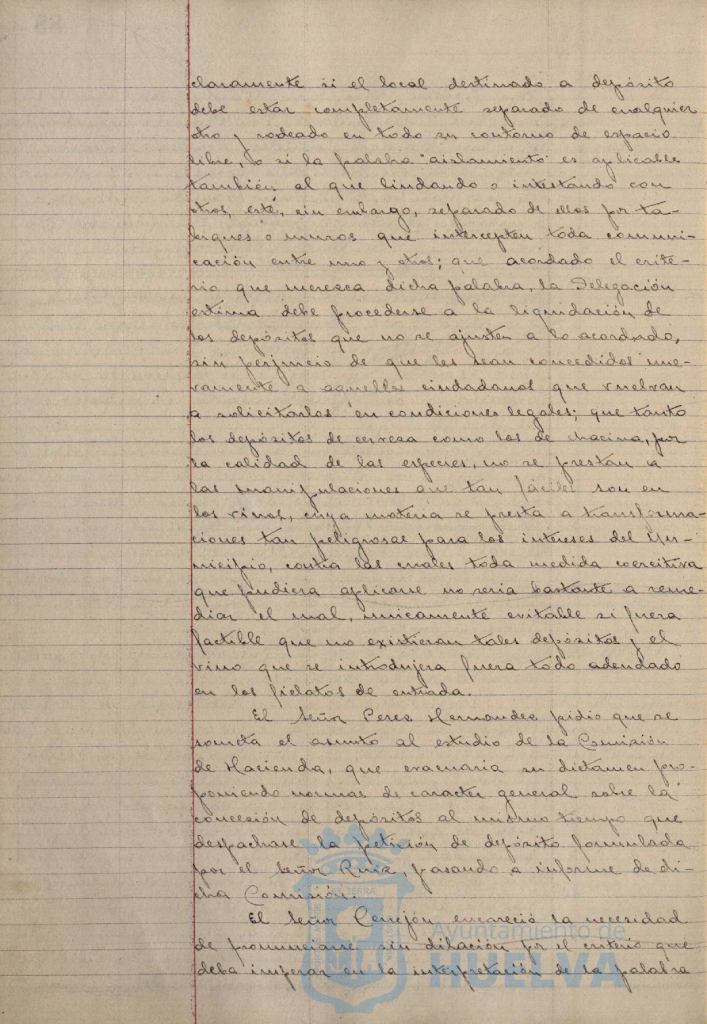 claramente si el local destinado a depósito
debe estar completamente separado de cualquier
otro y rodeado en todo su contorno de espacio
libre, o si la palabra "aislamiento" es aplicable
también al que lindando o intestando con
otros, esté, sin embargo, separado de ellos por ta-
biques o muros que intercepten toda comuni-
cación entre uno y otros; que acordado el crite-
rio que merezca dicha palabra, la Delegación
estima debe procederse a la liquidación de
los depósitos que no se ajusten a lo acordado,
sin perjuicio de que les sean concedidos nue-
vamente a aquellos ciudadanos que vuelvan
a solicitarlos en condiciones legales; que tanto
los depósitos de cerveza como los de chacina, por
la calidad de las especies, no se prestan a
las manipulaciones que tan fáciles son en
los vinos, cuya materia se presta a transforma-
ciones tan peligrosas para los intereses del Mu-
nicipio, contra las cuales toda medida coercitiva
que pudiera aplicarse no sería bastante a reme-
diar el mal, unicamente evitable si fuera
factible que no existieran tales depósitos y el
vino que se introdujera fuera todo adeudado
en los fielatos de entrada.
El Señor Perez Hernandez pidió que se
someta el asunto al estudio de la Comisión
de Hacienda, que evacuaria su dictamen pro-
poniendo normas de caracter general sobre la
concesión de depósitos al mismo tiempo que
despachase la petición de depósito formulada
por el Señor Ruiz, pasando a informe de di-
cha Comisión.
El Señor Cerrejón encareció la necesidad
de pronunciarse sin dilación por el criterio que
deba imperar en la interpretación de la palabra
Ayuntamiento de
HUELVA